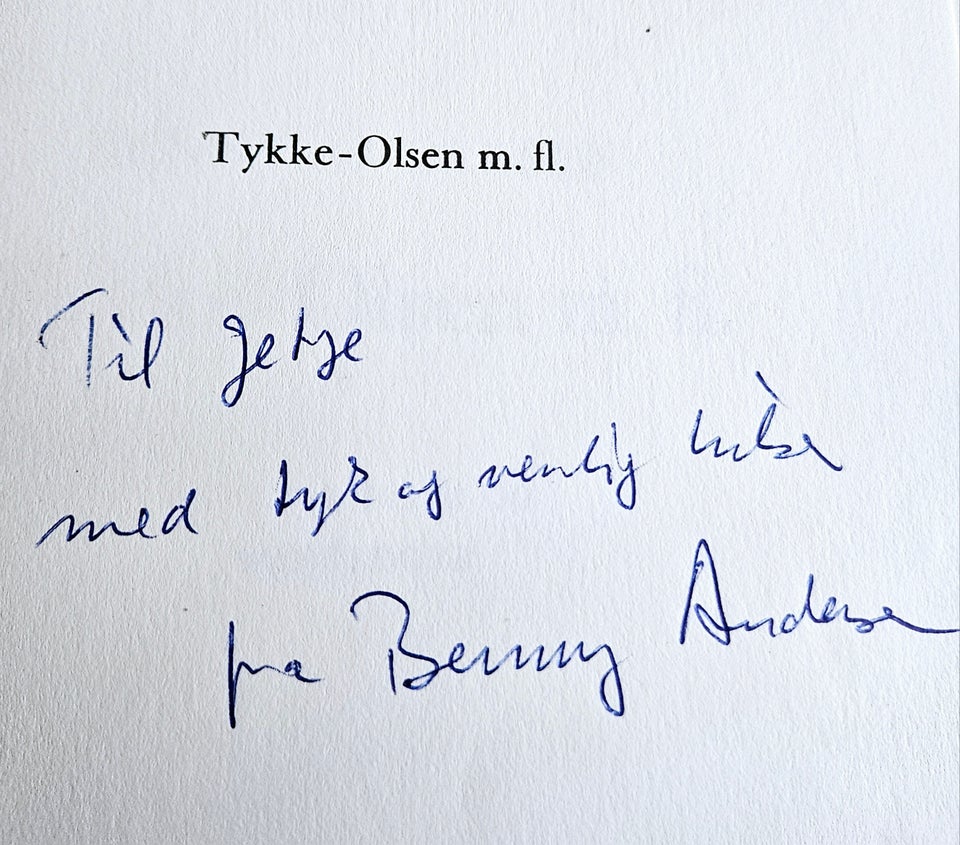 Tykke-Olsen m. fl.
Til Getje
med tyk og venlig hilsen
fra Benny Andersen